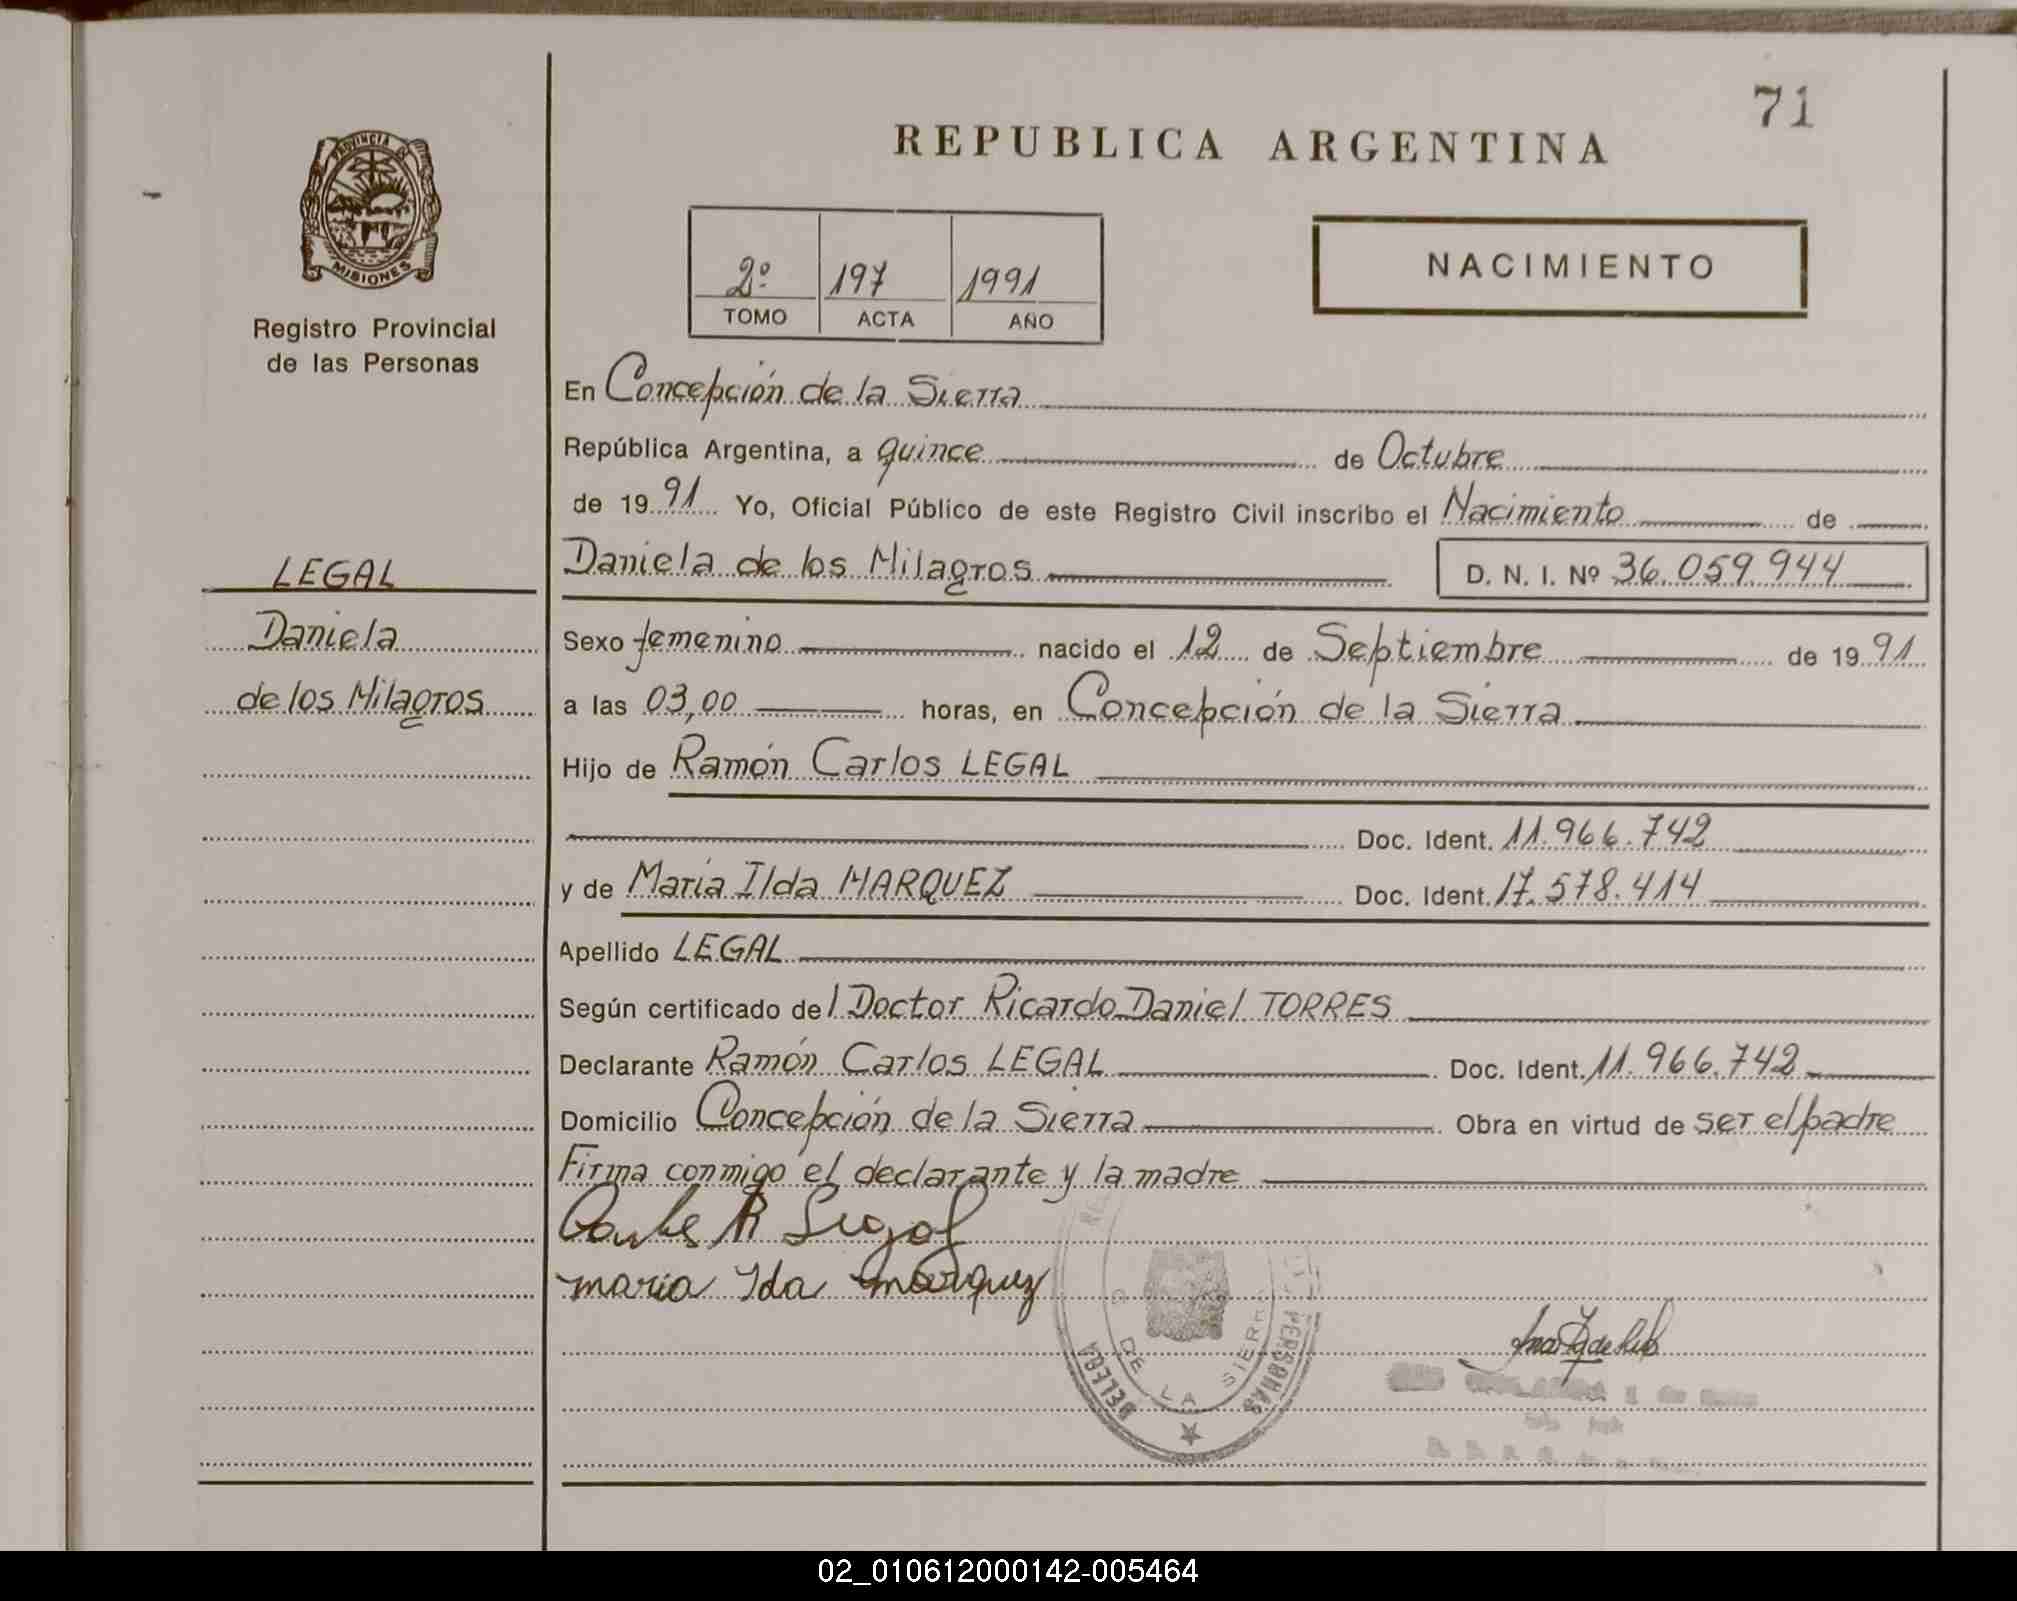 71
REPUBLICA ARGENTINA
PROVINCIA DE
MISIONES
Registro Provincial
de las Personas
2º 197 1991
TOMO ACTA AÑO
NACIMIENTO
En Concepción de la Sierra
República Argentina, a quince de Octubre
de 19 91 Yo, Oficial Público de este Registro Civil inscribo el Nacimiento de
Daniela de los Milagros D. N. I. Nº 36.059.944
LEGAL
Daniela
de los Milagros
Sexo femenino nacido el 12 de Septiembre de 19 91
a las 03,00 horas, en Concepción de la Sierra
Hijo de Ramón Carlos LEGAL
Doc. Ident. 11.966.742
y de María Ilda MARQUEZ Doc. Ident. 17.578.414
Apellido LEGAL
Según certificado del Doctor Ricardo Daniel TORRES
Declarante Ramón Carlos LEGAL Doc. Ident. 11.966.742
Domicilio Concepción de la Sierra Obra en virtud de ser el padre
Firma conmigo el declarante y la madre
Carlos R Legal
maria Ida marquez
DE LA SIERR
DELEGA PERSONAS
02_010612000142-005464